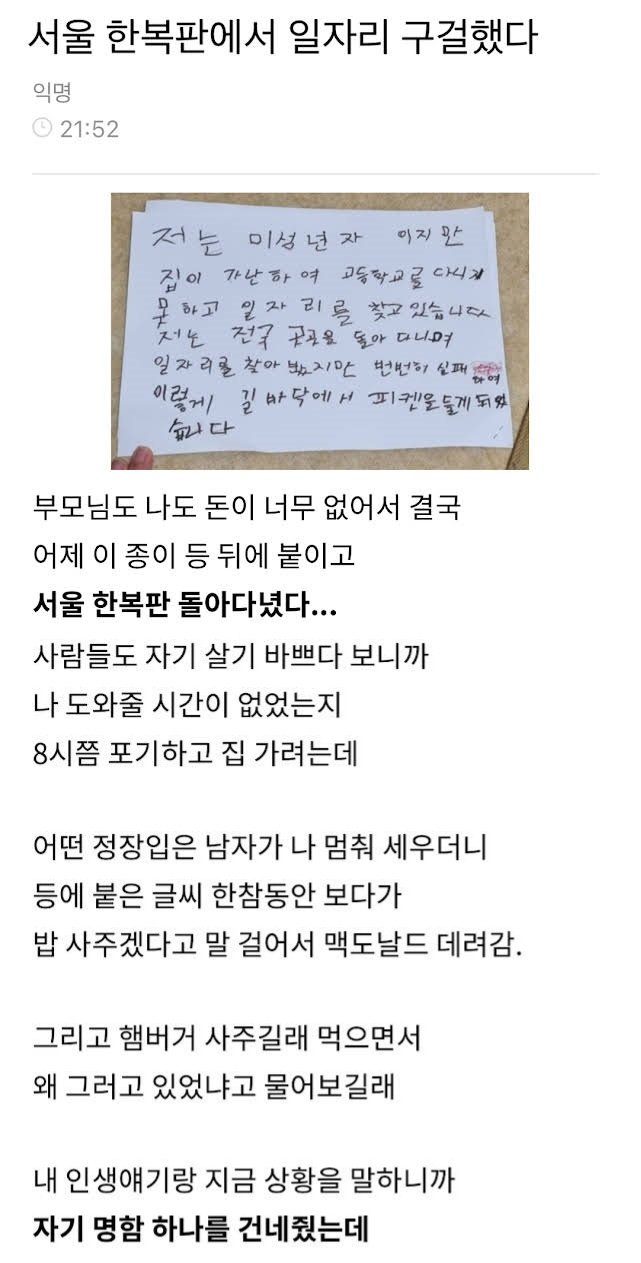 서울 한복판에서 일자리 구걸했다
익명
21:52
저는 미성년자 이지만
집이 가난하여 고등학교를 다니지
못하고 일자리를 찾고 있습니다
저는 전국 곳곳을 돌아 다니며
일자리를 찾아 봤지만 번번히 실패
하여
이렇게 길바닥에서 피켓을 들게 되었
습니다
부모님도 나도 돈이 너무 없어서 결국
어제 이 종이 등 뒤에 붙이고
서울 한복판 돌아다녔다...
사람들도 자기 살기 바쁘다 보니까
나 도와줄 시간이 없었는지
8시쯤 포기하고 집 가려는데
어떤 정장입은 남자가 나 멈춰 세우더니
등에 붙은 글씨 한참동안 보다가
밥 사주겠다고 말 걸어서 맥도날드 데려감.
그리고 햄버거 사주길래 먹으면서
왜 그러고 있었냐고 물어보길래
내 인생얘기랑 지금 상황을 말하니까
자기 명함 하나를 건네줬는데